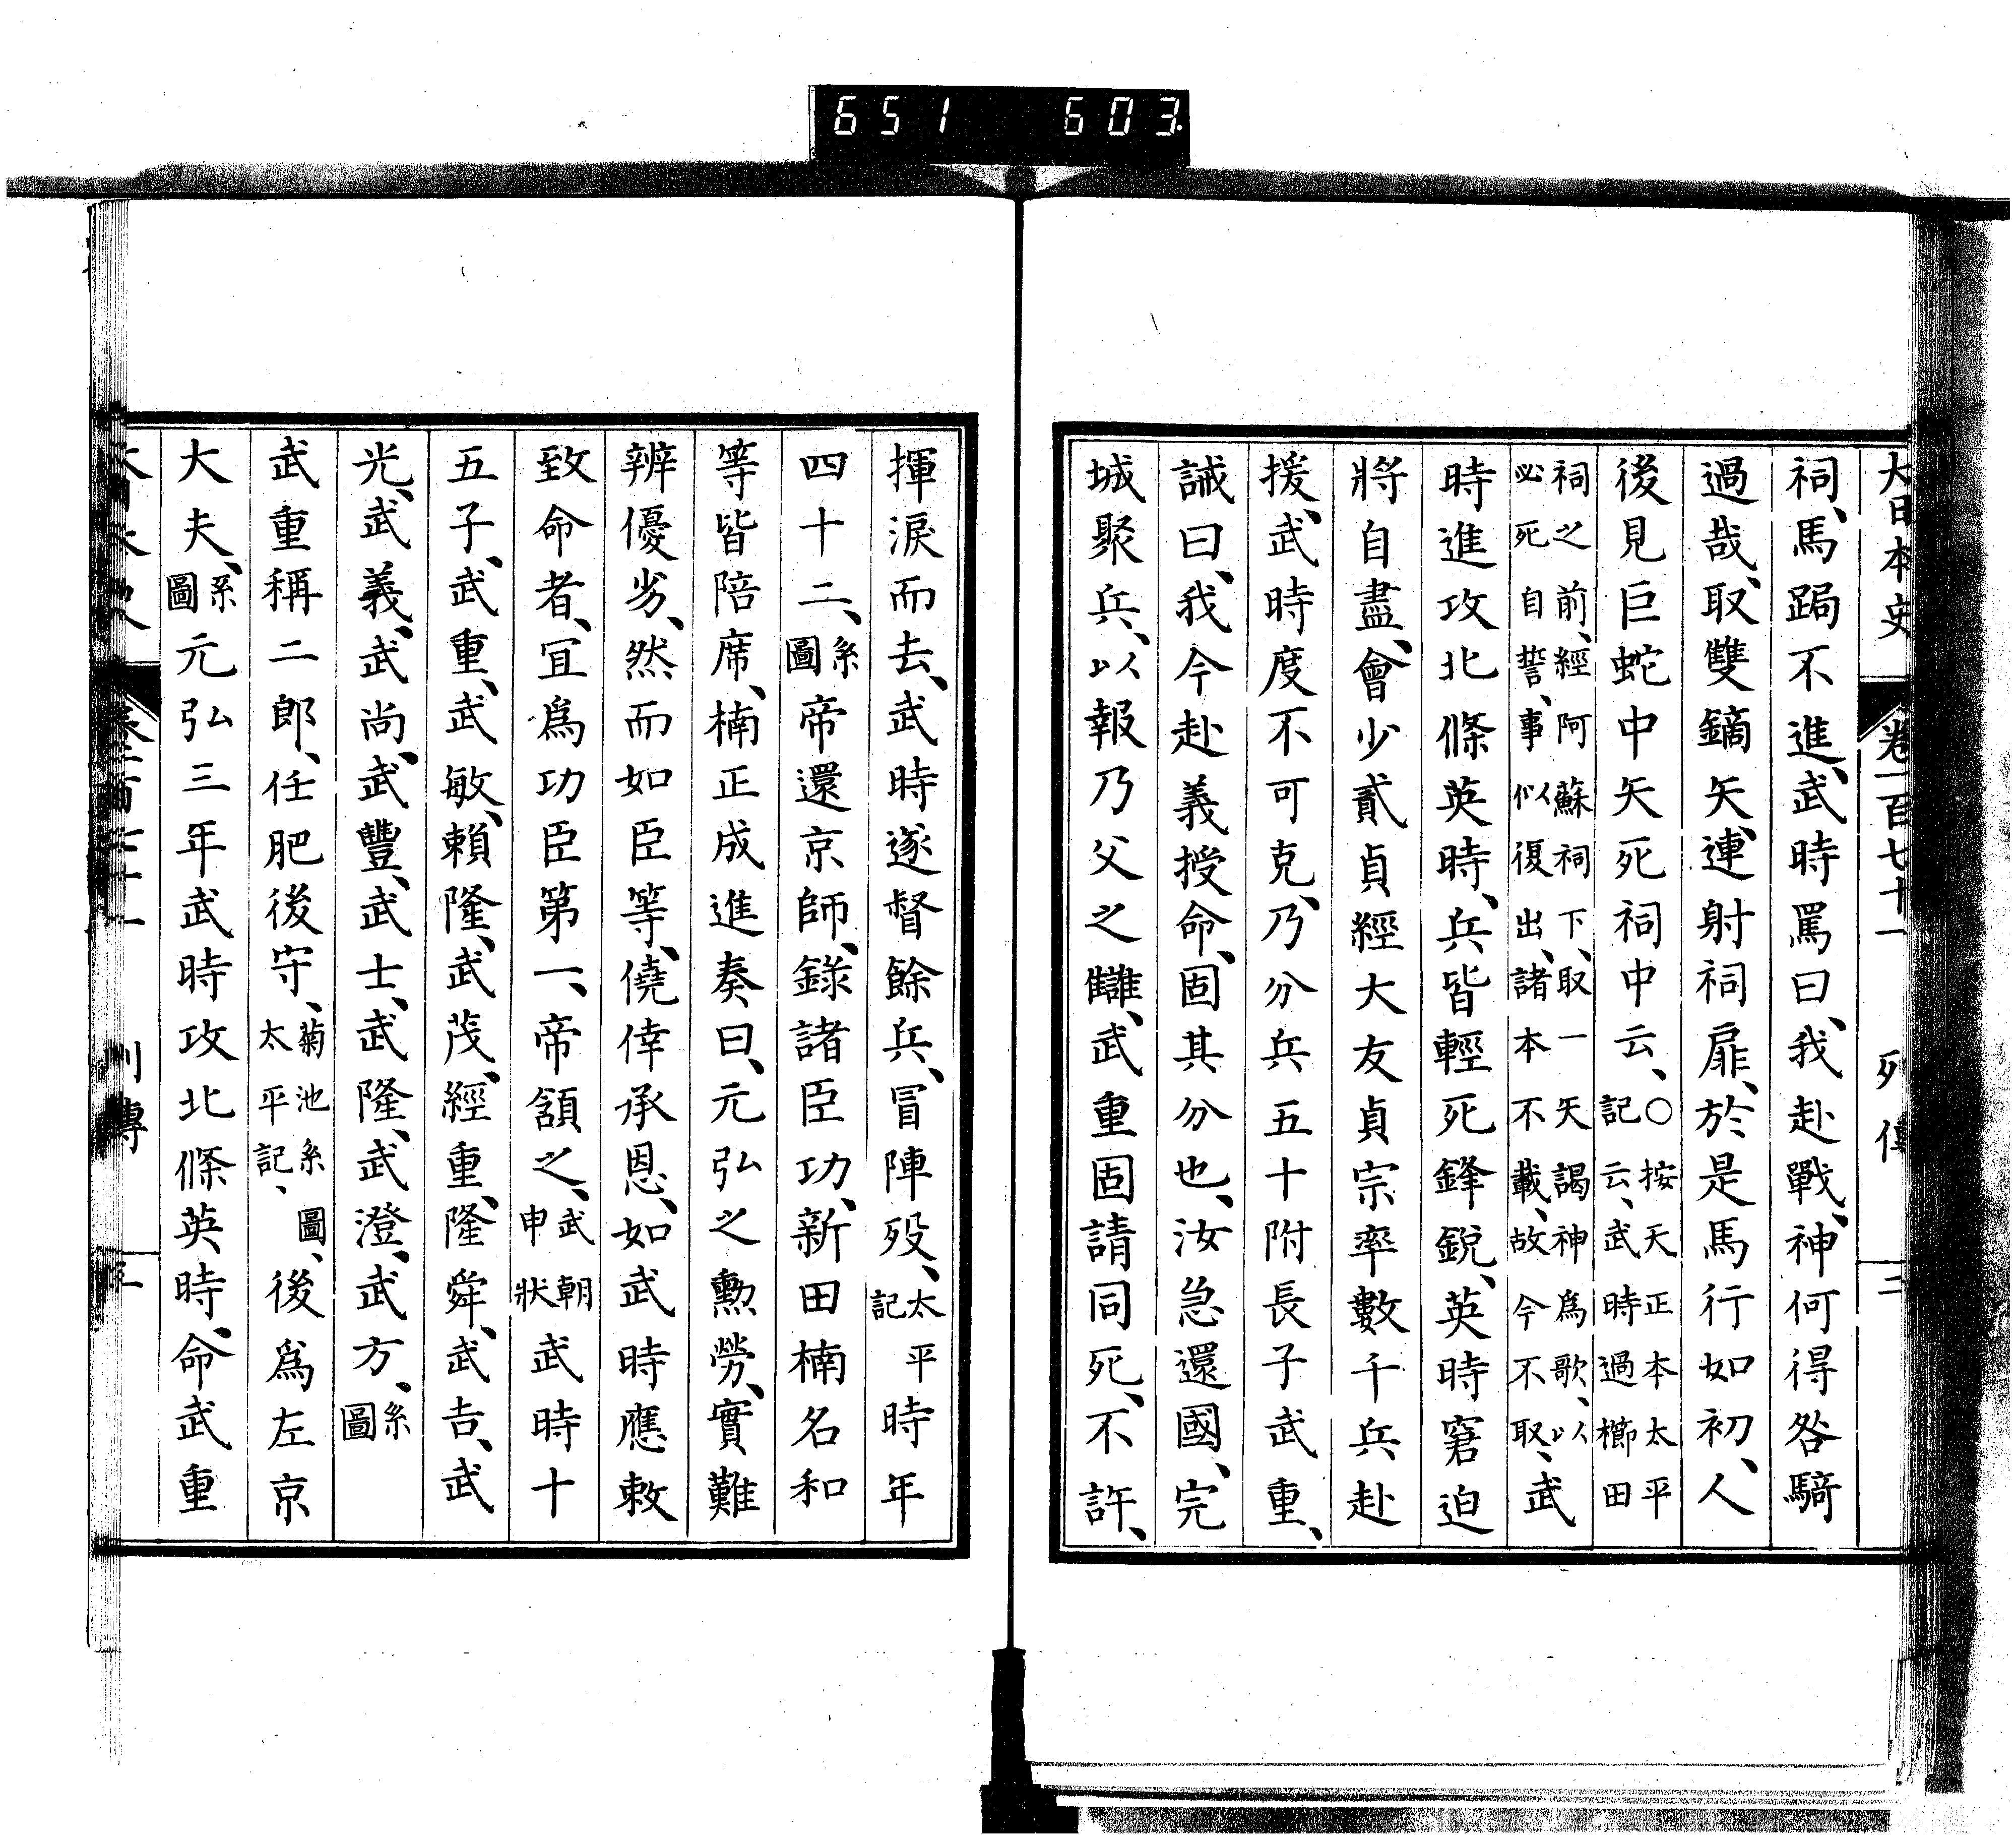 651 603
大日本史 卷一百七十一 列傳 二
祠、馬跼不進、武時罵曰、我赴戰、神何得咎騎
過哉、取雙鏑矢、連射祠扉、於是馬行如初、人
後見巨蛇中矢死祠中云、○按天正本太平記云、武時過櫛田
祠之前、經阿蘇祠下、取一矢謁神爲歌、以必死自誓、事似復出、諸本不載、故今不取、武
時進攻北條英時、兵皆輕死鋒銳、英時窘迫
將自盡、會少貳貞經大友貞宗率數千兵赴
援、武時度不可克、乃分兵五十附長子武重、
誡曰、我今赴義授命、固其分也、汝急還國、完
城聚兵、以報乃父之讎、武重固請同死、不許、
揮淚而去、武時遂督餘兵、冒陣歿、太平記時年
四十二、系圖帝還京師、錄諸臣功、新田楠名和
等皆陪席、楠正成進奏曰、元弘之勳勞、實難
辨優劣、然而如臣等、僥倖承恩、如武時應敕
致命者、宜爲功臣第一、帝頷之、武朝申狀武時十
五子、武重、武敏、賴隆、武茂、經重、隆舜、武吉、武
光、武義、武尚、武豐、武士、武隆、武澄、武方、系圖
武重稱二郎、任肥後守、菊池系圖、太平記、後爲左京
大夫、系圖元弘三年武時攻北條英時、命武重